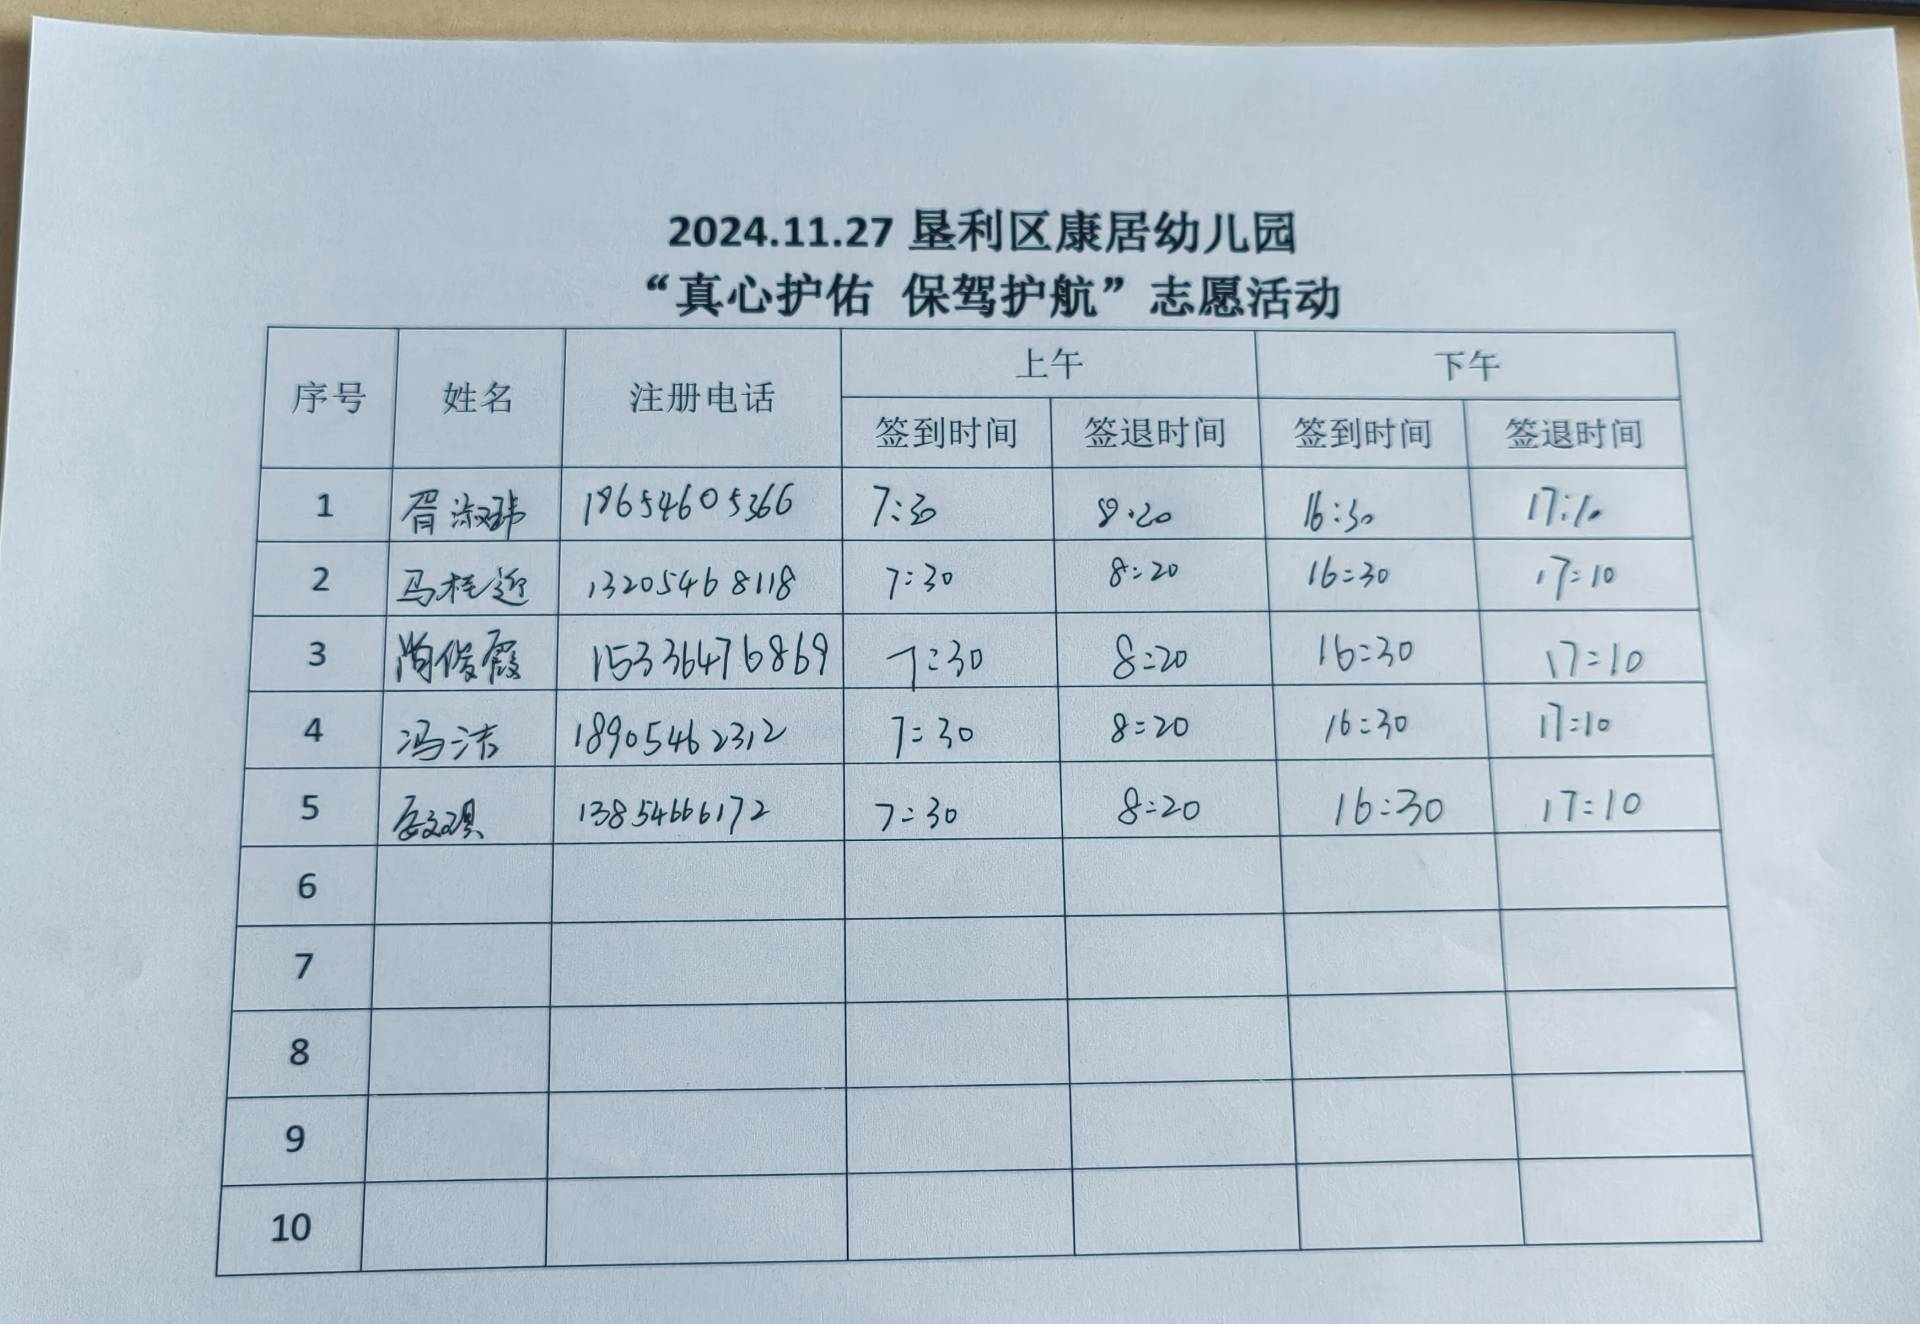 2024.11.27 垦利区康居幼儿园
“真心护佑 保驾护航”志愿活动
序号 姓名 注册电话 上午 下午
签到时间 签退时间 签到时间 签退时间
1 胥淑玮 18654605366 7:30 8:20 16:30 17:10
2 马桂迎 13205468118 7:30 8:20 16:30 17:10
3 尚俊霞 15336476869 7:30 8:20 16:30 17:10
4 冯洁 18905462312 7:30 8:20 16:30 17:10
5 13854666172 7:30 8:20 16:30 17:10
6
7
8
9
10